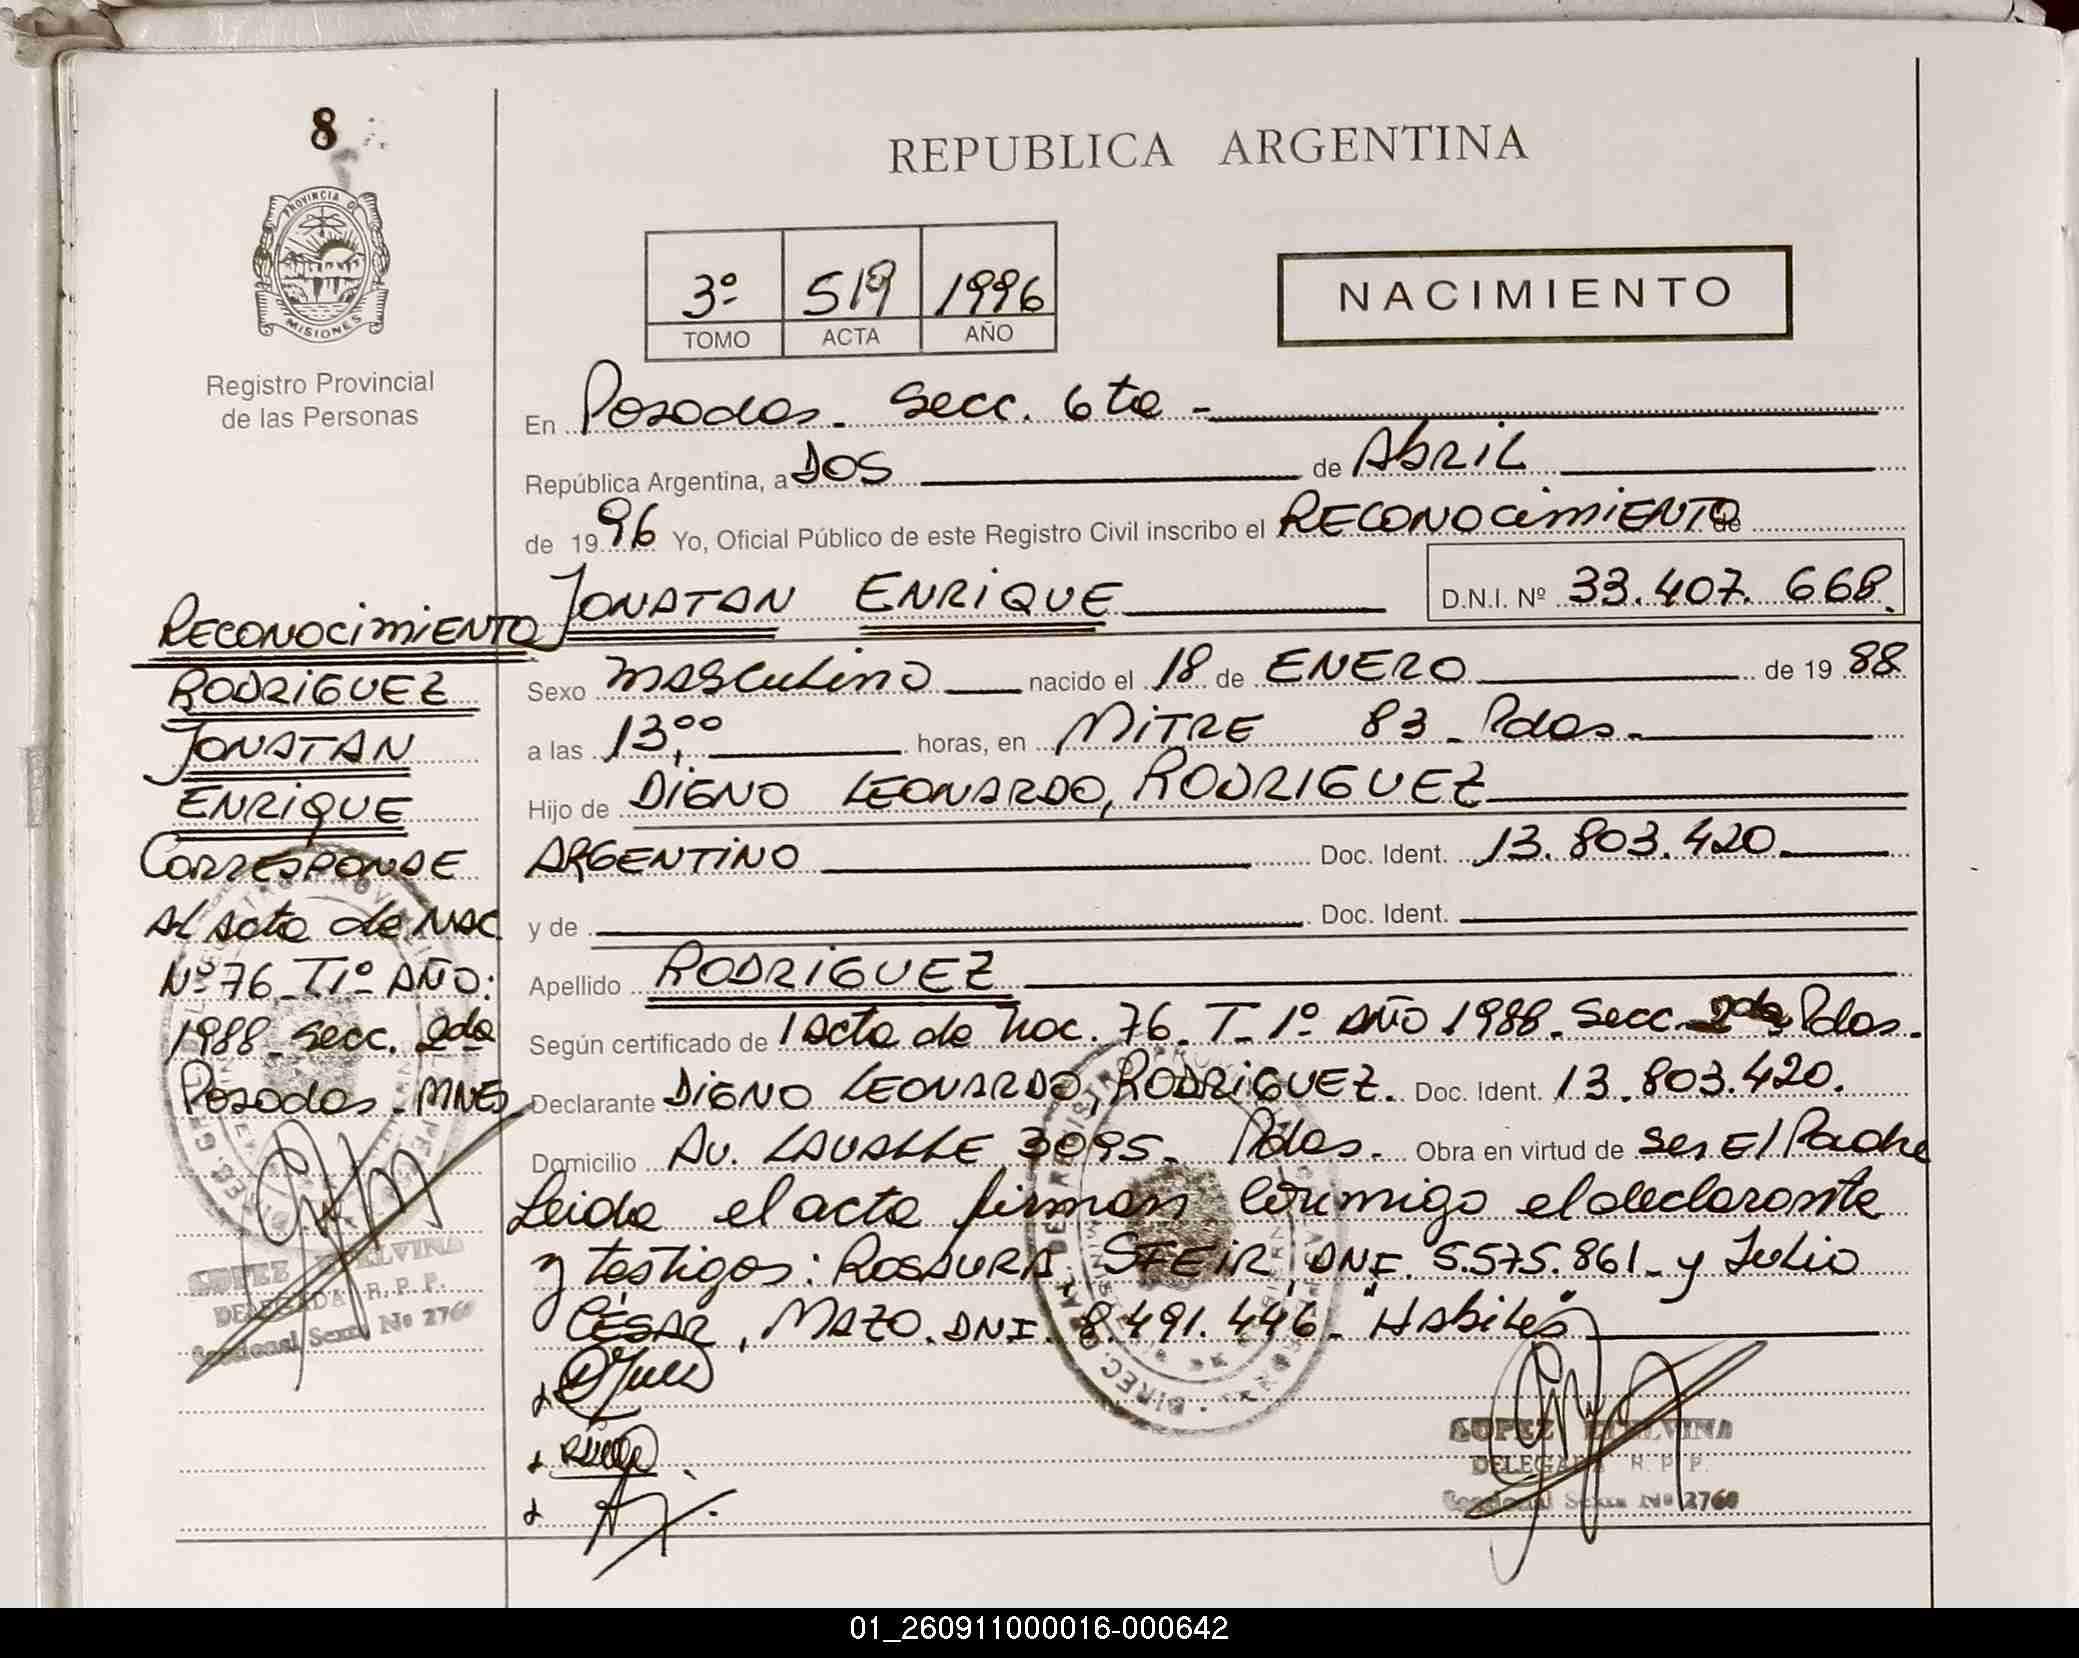 8
PROVINCIA DE
MISIONES
Registro Provincial
de las Personas
REPUBLICA ARGENTINA
3º 519 1996
TOMO ACTA AÑO
NACIMIENTO
En Posadas - Secc. 6ta -
República Argentina, a DOS de Abril
de 1996 Yo, Oficial Público de este Registro Civil inscribo el RECONOCIMIENTO de
JONATAN ENRIQUE D.N.I. Nº 33.407.668.
Sexo masculino nacido el 18 de ENERO de 1988
a las 13,00 horas, en MITRE 83 - Pdas.
Hijo de DIGNO LEONARDO, RODRIGUEZ
ARGENTINO Doc. Ident. 13.803.420
y de Doc. Ident.
Apellido RODRIGUEZ
Según certificado de 1 acta de nac. 76 - T - 1º AÑO 1988 - Secc. 2da Pdas.
Declarante DIGNO LEONARDO, RODRIGUEZ. Doc. Ident. 13.803.420.
Domicilio Av. LAVALLE 3095 - Pdas. - Obra en virtud de Ser El Padre
Leida el acta firman conmigo el declarante
y testigos: ROSAURA SFEIR DNI. 5.575.861 - y Julio
CÉSAR, MAZO. DNI. 8.491.446 - "Habiles"
RECONOCIMIENTO
RODRIGUEZ
JONATAN
ENRIQUE
CORRESPONDE
Al acta de NAC
Nº 76 - T 1º AÑO:
1988 - Secc. 2da
Posadas - MNES
LOPEZ ETELVINA
DELEGADA R. P. P.
Seccional Sexta Nº 2760
LOPEZ ETELVINA
DELEGADA R. P. P.
Seccional Sexta Nº 2760
01_260911000016-000642